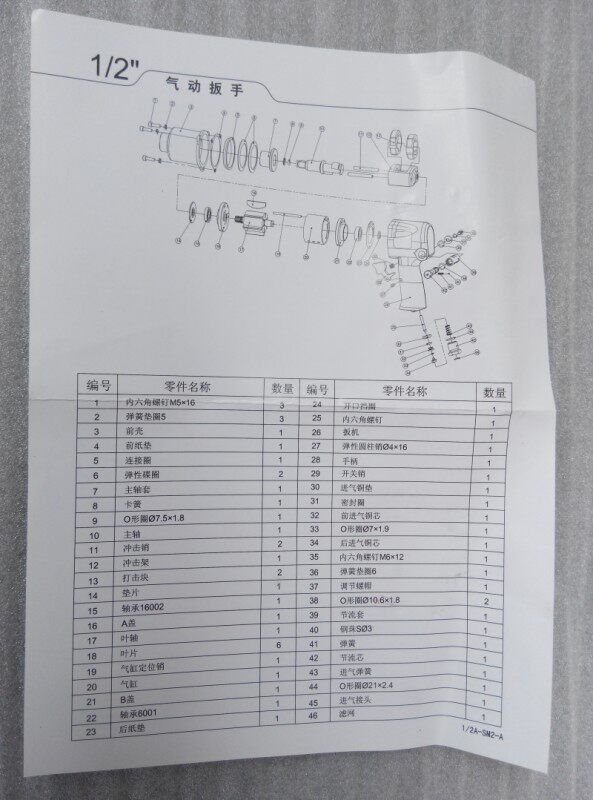 1/2"
气动扳手
编号 零件名称 数量 编号 零件名称 数量
1 内六角螺钉M5×16 3 24 开口挡圈 1
2 弹簧垫圈5 3 25 内六角螺钉 1
3 前壳 1 26 扳机 1
4 前纸垫 1 27 弹性圆柱销Ø4×16 1
5 连接圈 1 28 手柄 1
6 弹性碟圈 2 29 开关销 1
7 主轴套 1 30 进气铜垫 1
8 卡簧 1 31 密封圈 1
9 O形圈Ø7.5×1.8 1 32 前进气铜芯 1
10 主轴 1 33 O形圈Ø7×1.9 1
11 冲击销 2 34 后进气铜芯 1
12 冲击架 1 35 内六角螺钉M6×12 1
13 打击块 2 36 弹簧垫圈6 1
14 垫片 1 37 调节螺帽 1
15 轴承16002 1 38 O形圈Ø10.6×1.8 2
16 A盖 1 39 节流套 1
17 叶轴 1 40 钢珠SØ3 1
18 叶片 6 41 弹簧 1
19 气缸定位销 1 42 节流芯 1
20 气缸 1 43 进气弹簧 1
21 B盖 1 44 O形圈Ø21×2.4 1
22 轴承6001 1 45 进气接头 1
23 后纸垫 1 46 滤网 1
1/2A-SM2-A